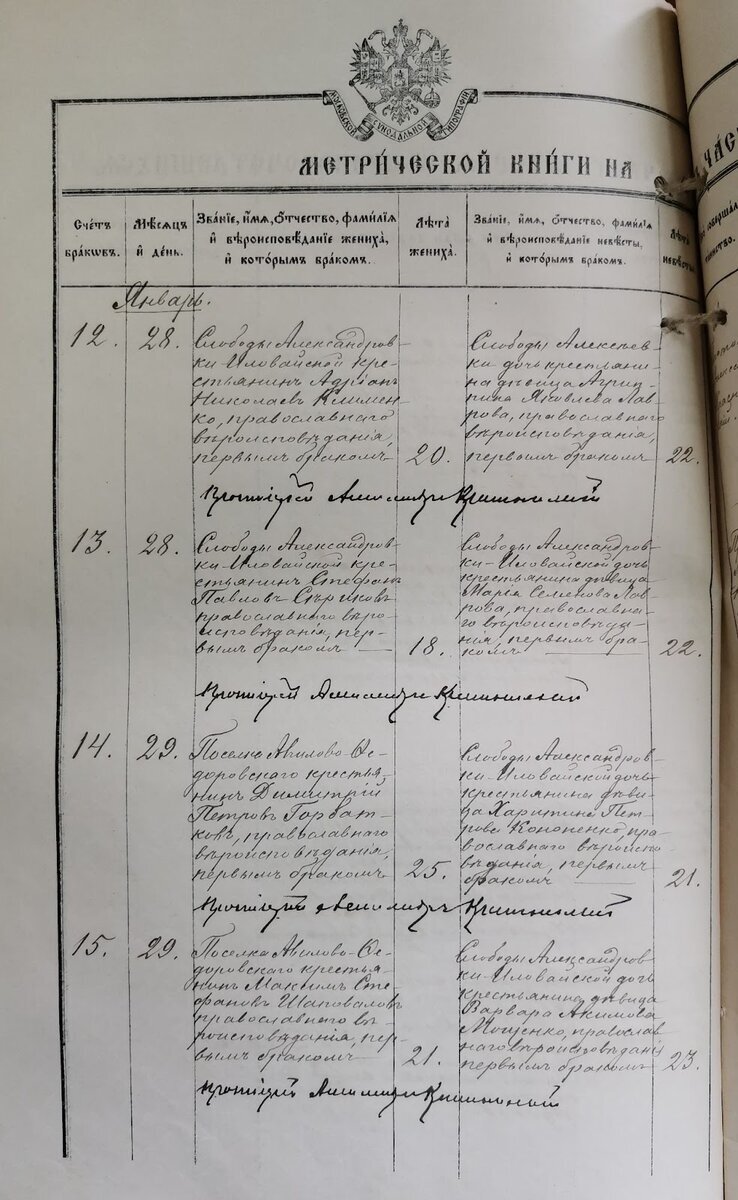 МОСКОВСКОЙ СѴНОДАЛЬНОЙ ТИПОГРАФІИ
МЕТРИ́ЧЕСКОЙ КНИ́ГИ НА
ЧАС
Сче́тъ бра́кѡвъ.
Мѣ́сѧцъ и҆ де́нь.
Зва́нїе, и҆́мѧ, ѻ҆́тчество, фами́лїѧ
и҆ вѣроисповѣ́данїе жениха̀,
и҆ кото́рымъ бра́комъ.
Лѣ́та жениха̀.
Зва́нїе, и҆́мѧ, ѻ҆́тчество, фами́лїѧ
и҆ вѣроисповѣ́данїе невѣ́сты,
и҆ кото́рымъ бра́комъ.
Лѣ́та невѣ́сты.
Январь.
12.
28.
Слободы Александров-
ки-Иловайской кре-
стьянинъ Адріанъ
Николаевъ Климен-
ко, православнаго
вѣроисповѣданія,
первымъ бракомъ
20.
Слободы Алексѣев-
ки дочь крестьяни-
на дѣвица Агрип-
пина Яковлева Лав-
рова, православнаго
вѣроисповѣданія,
первымъ бракомъ
22.
Протоіерей Александръ
13.
28.
Слободы Александров-
ки-Иловайской кре-
стьянинъ Стефанъ
Павловъ Сѣриковъ
православнаго вѣро-
исповѣданія, пер-
вымъ бракомъ
18.
Слободы Александров-
ки-Иловайской дочь
крестьянина дѣвица
Марія Семенова Лав-
рова, православна-
го вѣроисповѣда-
нія, первымъ бра-
комъ
22.
Протоіерей Александръ
14.
29.
Поселка Авилово-Ѳе-
доровскаго крестья-
нинъ Димитрій
Петровъ Горбат-
ковъ, православнаго
вѣроисповѣданія,
первымъ бракомъ
25.
Слободы Александров-
ки-Иловайской дочь
крестьянина дѣви-
ца Харитина Пет-
рова Кононенко, пра-
вославнаго вѣроиспо-
вѣданія, первымъ
бракомъ
21.
Протоіерей Александръ
15.
29.
Поселка Авилово-Ѳе-
доровскаго крестья-
нинъ Максимъ Сте-
фановъ Шаповаловъ
православнаго вѣ-
роисповѣданія, пер-
вымъ бракомъ
21.
Слободы Александров-
ки-Иловайской дочь
крестьянина дѣвица
Варвара Акимова
Мощенко, православ-
наго вѣроисповѣданія
первымъ бракомъ
23.
Протоіерей Александръ